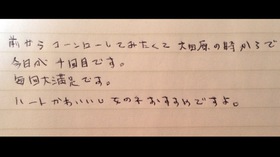 前からコーンローしてみたくて大田原の時からで
今日が十回目です。
毎回大満足です。
ハートかわいいし女の子おすすめですよ。